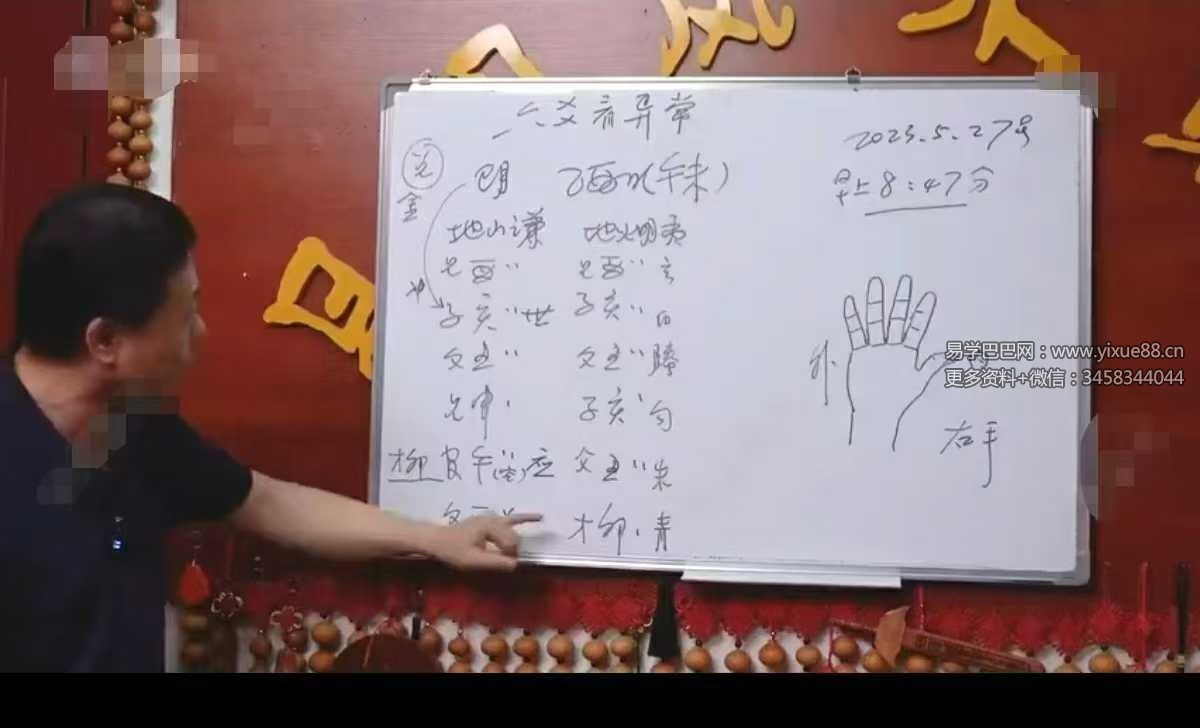 六爻看异常
2023.5.27号
早上8:47分
兑
金
巳月 乙酉日(午未)
地山谦 地火明夷
兄酉〃 兄酉〃玄
冲
子亥〃世 子亥〃白
父丑〃 父丑〃腾
兄申、 子亥、勾
才卯 官午〃应 父丑〃朱
才卯、青
外
右手
易学巴巴网：www.yixue88.cn
更多资料+微信：3458344044